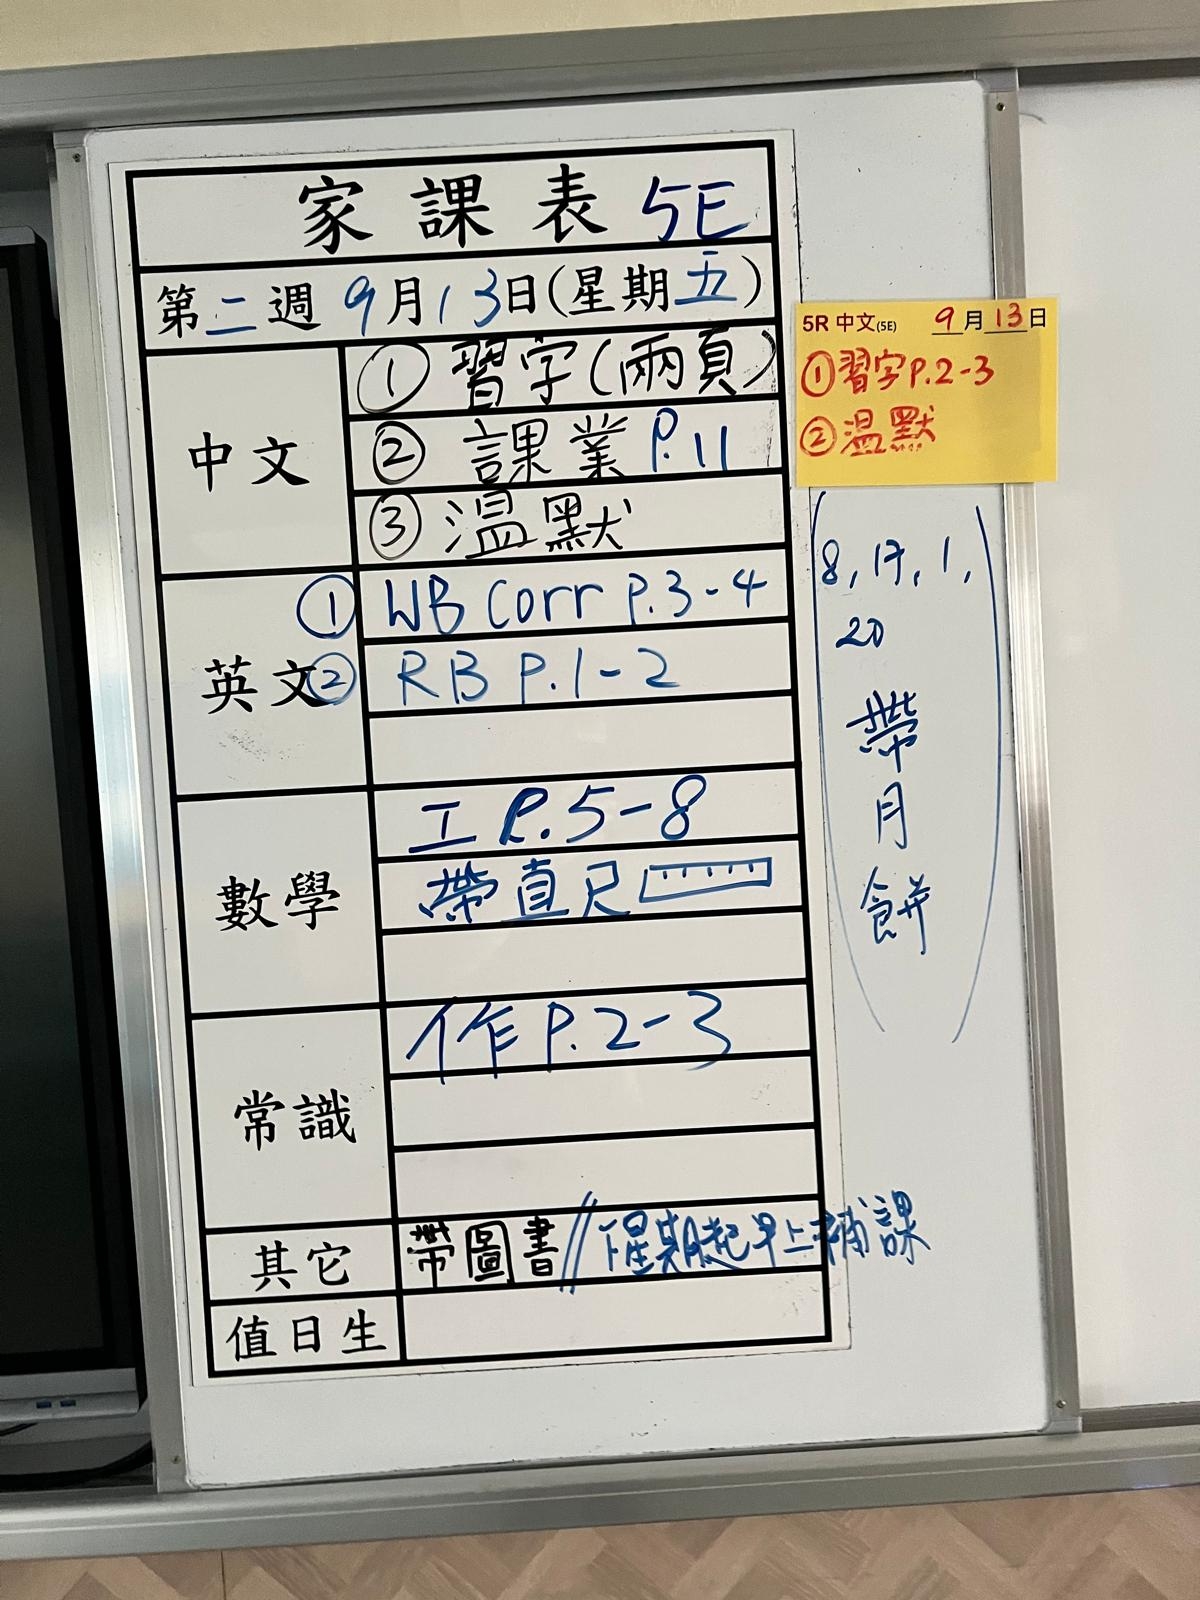 家課表 5E
第二週 9月13日(星期五)
中文
① 習字(兩頁)
② 課業 P.11
③ 溫默
英文
① WB Corr P.3-4
② RB P.1-2
數學
工 P.5-8
帶直尺
常識
作 P.2-3
其它
帶圖書//下星期起早上補課
值日生
5R 中文(5E) 9月13日
①習字P.2-3
②温默
(8, 17, 1,
20
帶
月
餅)